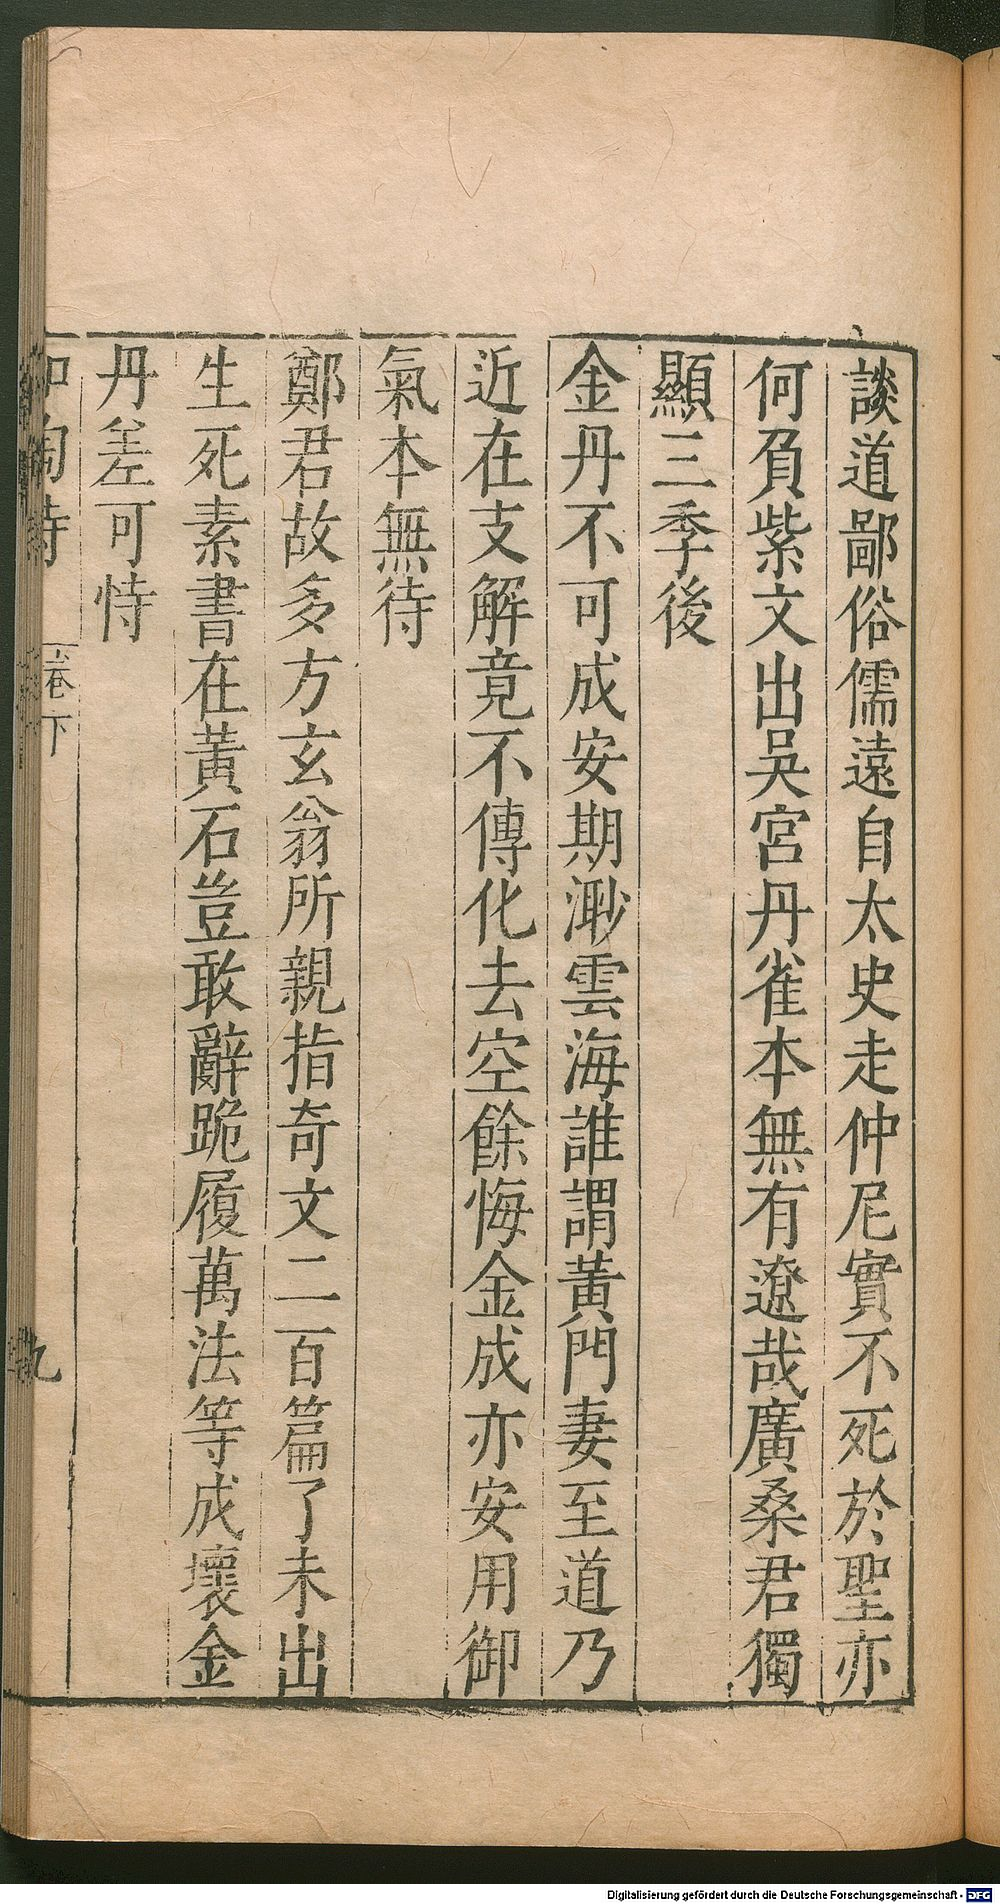 談道鄙俗儒遠自太史走仲尼實不死於聖亦
何負紫文出吳宮丹雀本無有遼哉廣桑君獨
顯三季後
金丹不可成安期渺雲海誰謂黃門妻至道乃
近在支解竟不傳化去空餘悔金成亦安用御
氣本無待
鄭君故多方玄翁所親指奇文二百篇了未出
生死素書在黃石豈敢辭跪履萬法等成壞金
丹差可恃
和陶詩 卷下 九
Digitalisierung gefördert durch die Deutsche Forschungsgemeinschaft - DFG